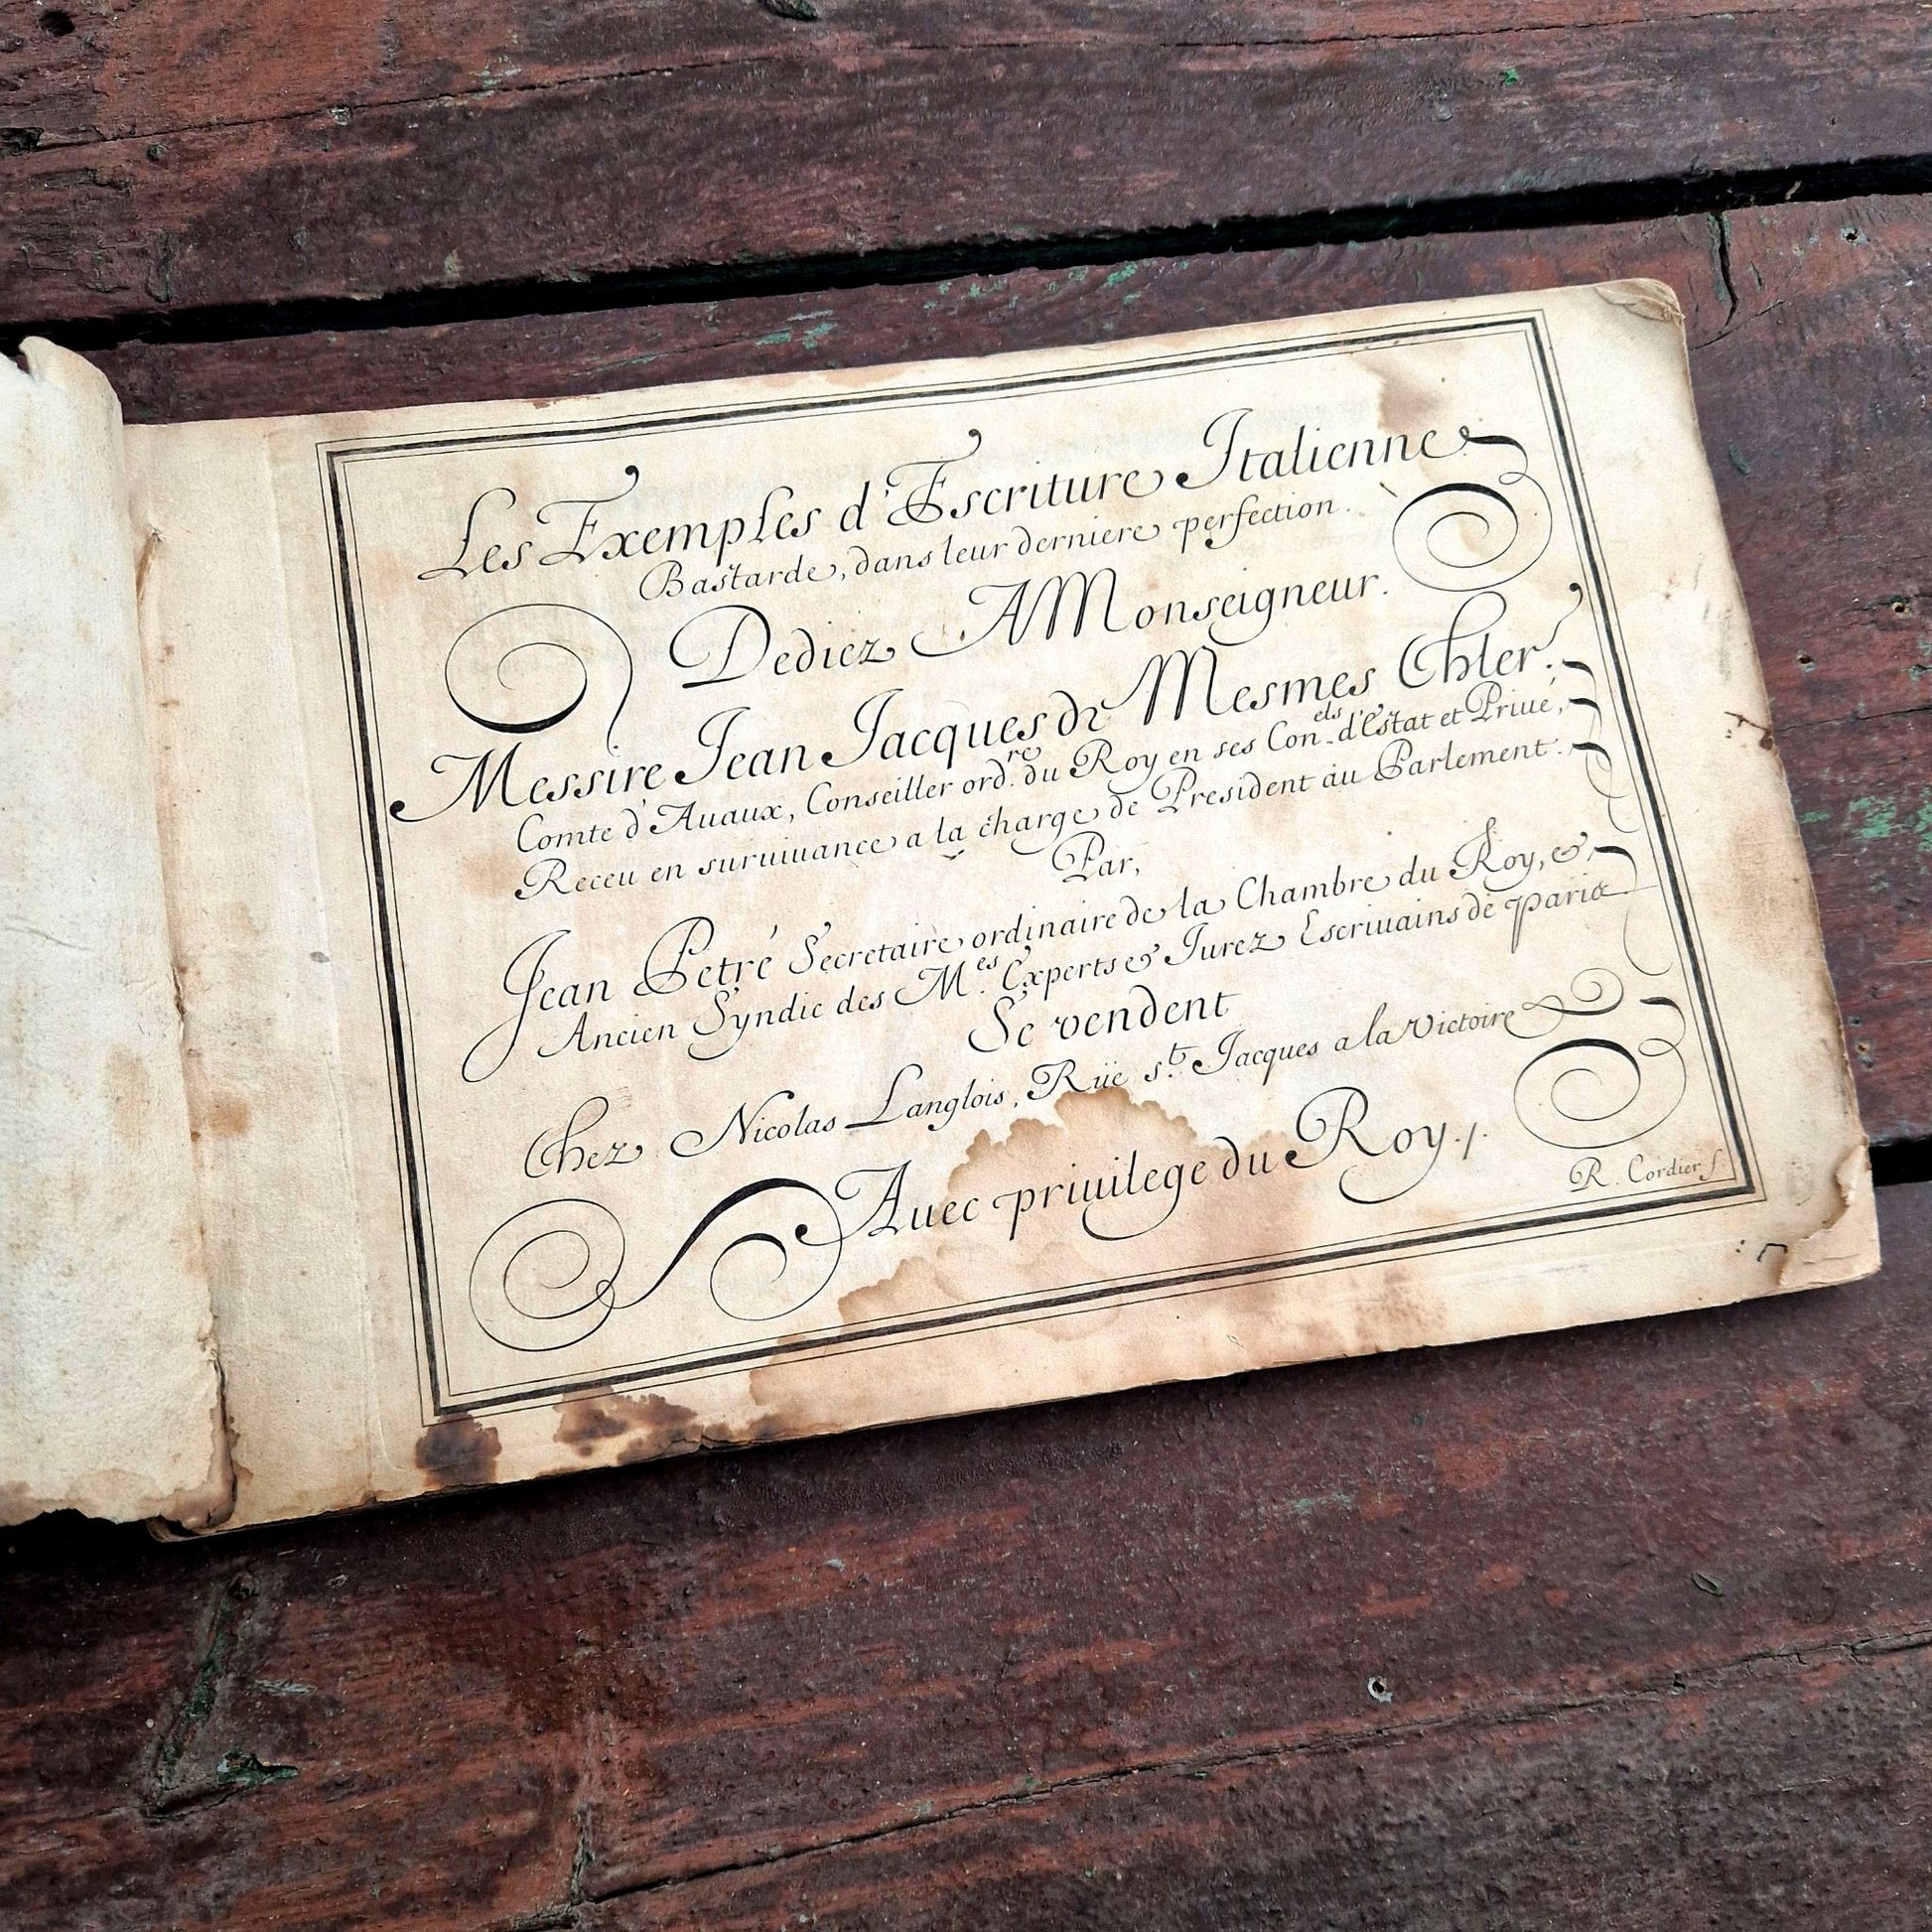 Les Exemples d'Escriture Italienne
Bastarde, dans leur derniere perfection.
Dediez A Monseigneur.
Messire Jean Jacques de Mesmes Chler.
Comte d'Auaux, Conseiller ord.re du Roy en ses Con.els d'Estat et Priué,
Receu en suruiuance a la charge de President au Parlement.
Par,
Jean Petré Secretaire ordinaire de la Chambre du Roy, &
Ancien Syndic des M.es Experts & Jurez Escriuains de Paris
Se vendent
Chez Nicolas Langlois, Rüe st. Jacques a la Victoire
Auec priuilege du Roy.
R. Cordier s.